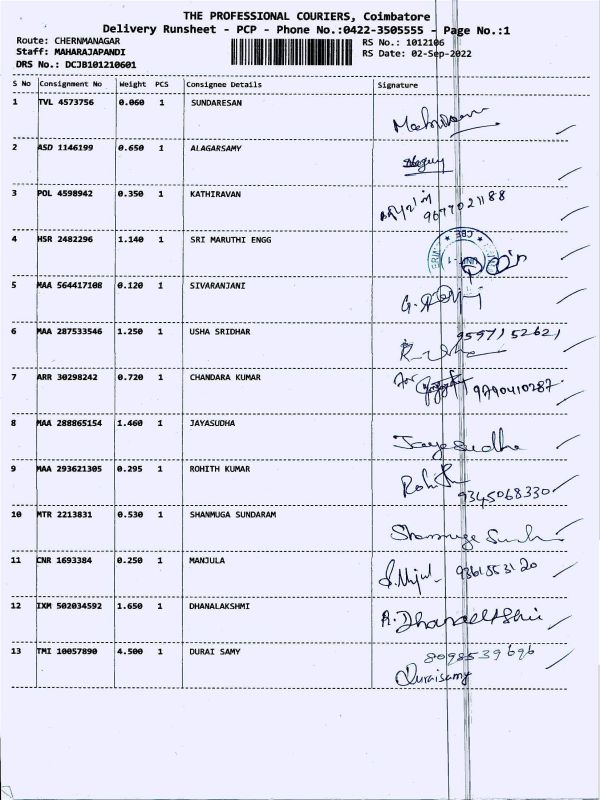 THE PROFESSIONAL COURIERS, Coimbatore
Delivery Runsheet - PCP - Phone No.:0422-3505555 - Page No.:1
Route: CHERNMANAGAR RS No.: 1012106
Staff: MAHARAJAPANDI RS Date: 02-Sep-2022
DRS No.: DCJB101210601
S No Consignment No Weight PCS Consignee Details Signature
1 TVL 4573756 0.060 1 SUNDARESAN
2 ASD 1146199 0.650 1 ALAGARSAMY
3 POL 4598942 0.350 1 KATHIRAVAN
9677021188
4 HSR 2482296 1.140 1 SRI MARUTHI ENGG
CBE
5 MAA 564417108 0.120 1 SIVARANJANI
6 MAA 287533546 1.250 1 USHA SRIDHAR 9597152621
7 ARR 30298242 0.720 1 CHANDARA KUMAR for
9790410287
8 MAA 288865154 1.460 1 JAYASUDHA
Jayasudha
9 MAA 293621305 0.295 1 ROHITH KUMAR Rohith
9345068330
10 MTR 2213831 0.530 1 SHANMUGA SUNDARAM
11 CNR 1693384 0.250 1 MANJULA
9361553120
12 IXM 502034592 1.650 1 DHANALAKSHMI
13 TMI 10057890 4.500 1 DURAI SAMY 8098539696
Duraisamy